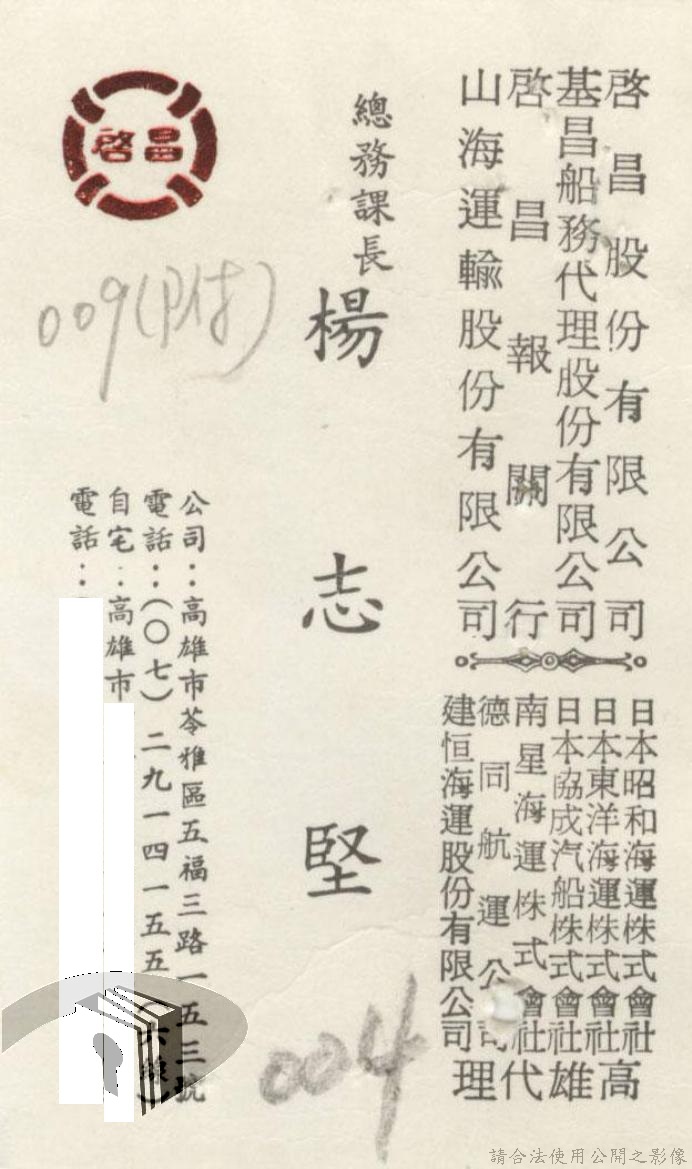 啓昌股份有限公司
基昌船務代理股份有限公司
啓昌報關行
山海運輸股份有限公司
日本昭和海運株式會社
日本東洋海運株式會社
日本協成汽船株式會社
南星海運株式會社
德同航運公司
建恒海運股份有限公司
高雄代理
總務課長
楊志堅
啓昌
009(附)
公司：高雄市苓雅區五福三路一五三號
電話：(〇七)二九一四一五五(六線)
自宅：高雄市
電話：
004
請合法使用公開之影像